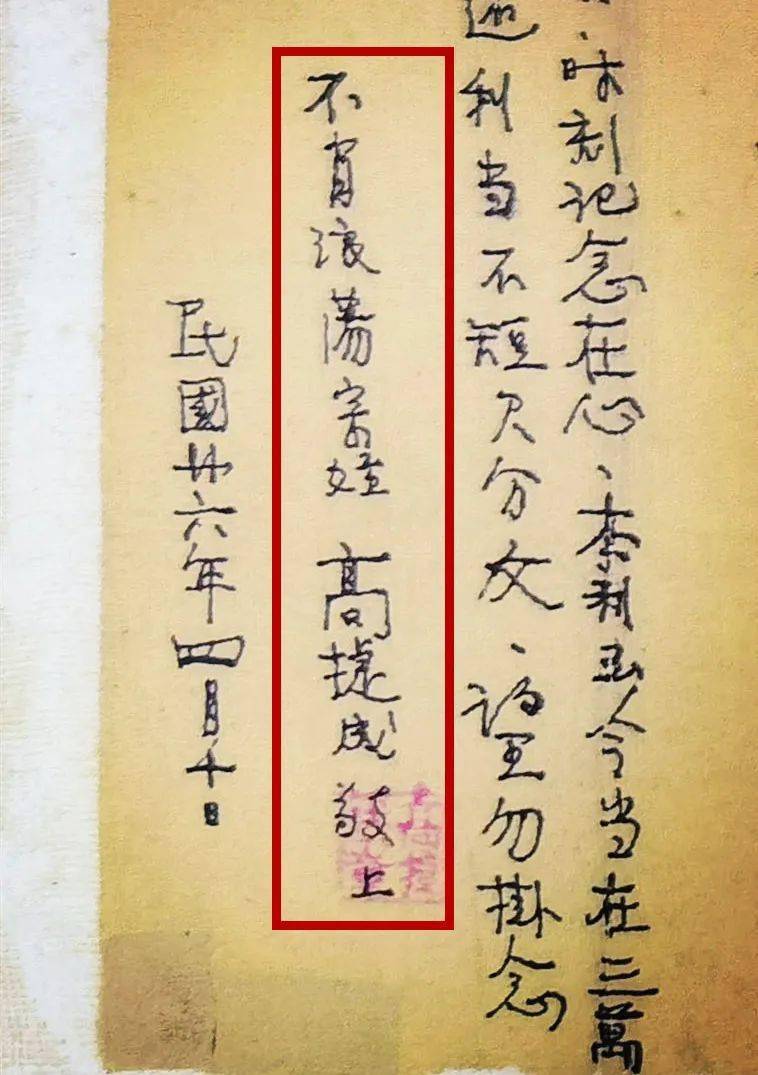 、时刻记念在心、本利至今当在三萬
利当不短欠分文、勿掛念
不肖浪蕩宗姪 高捷成敬上
民國廿六年四月十日